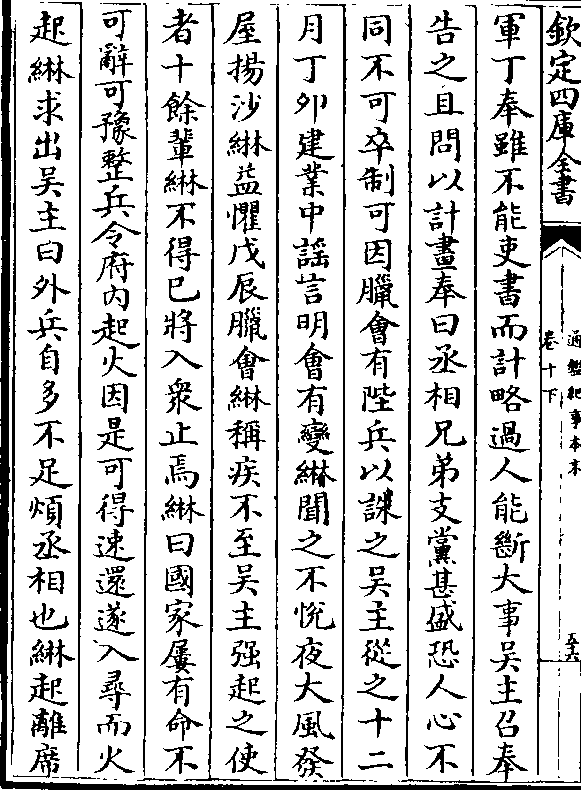 欽定四庫全書
通鑑紀事本末
卷十下
五十六
軍丁奉雖不能吏書而計略過人能斷大事吳主召奉
告之且問以計畫奉曰丞相兄弟支黨甚盛恐人心不
同不可卒制可因臘會有陛兵以誅之吳主從之十二
月丁卯建業中謡言明會有變綝聞之不悅夜大風發
屋揚沙綝益懼戊辰臘會綝稱疾不至吳主强起之使
者十餘輩綝不得已將入衆止焉綝曰國家屢有命不
可辭可豫整兵令府内起火因是可得速還遂入尋而火
起綝求出吳主曰外兵自多不足煩丞相也綝起離席